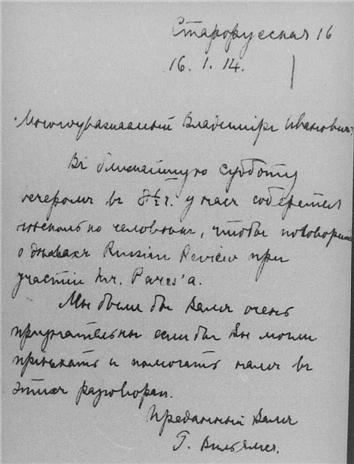 Старорусская 16
16. I. 14.
Многоуважаемый Владимiръ Ивановичъ,
Въ ближайшую субботу
вечеромъ въ 8½ г. у насъ соберется
несколько человекъ, чтобы поговорить
о делахъ Russian Review при
участiи Mr. Pares'a.
Мы были бы Вамъ очень
признательны если бы Вы могли
прiехать и помогать намъ въ
этихъ разговорахъ.
Преданный Вамъ
Г. Вильямсъ.